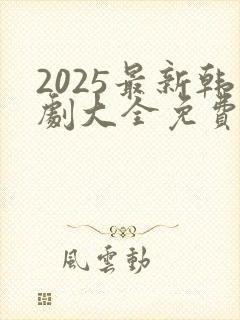 2025最新韩
劇大全免費
風雲動